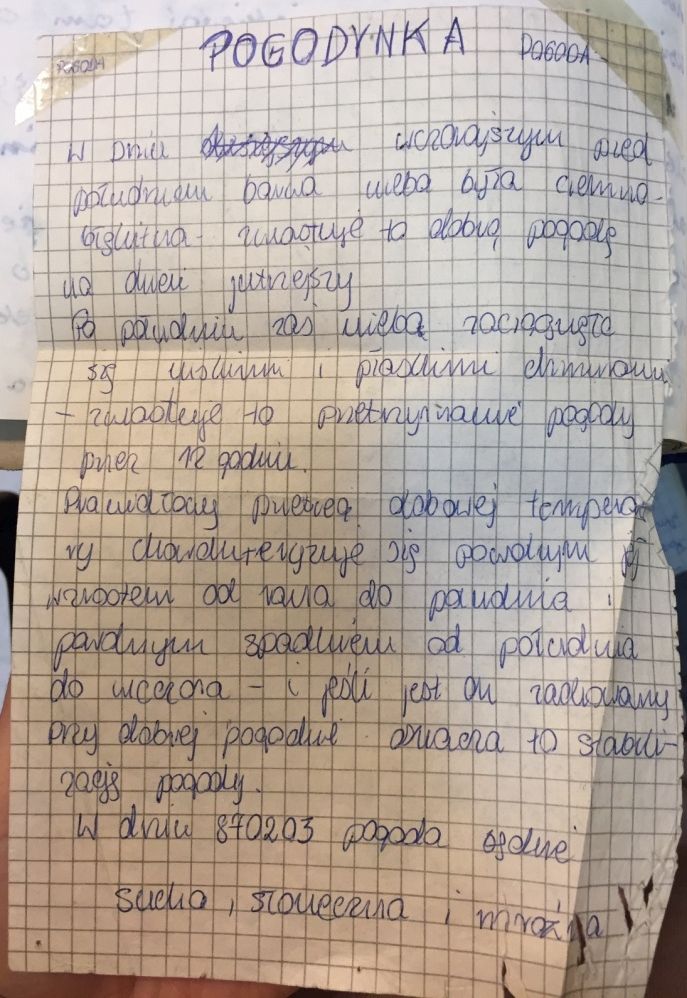 POGODYNKA
POGODA
POGODA
W Dniu wczorajszym pred
południem barwa nieba była ciemno-
błękitna - zwiastuje to dobrą pogodę
na dzień jutrzejszy
Po południu zaś niebo zaciągnęło
się niskimi i płaskimi chmurami
- zwiastuje to przetrzymanie pogody
przez 12 godzin.
Prawidłowy przebieg dobowej tempera
ry charakteryzuje się powolnym jej
wzrostem od rana do południa i
powolnym spadkiem od południa
do wieczora - i jeśli jest on zachowany
przy dobrej pogodzie oznacza to stabili-
zację pogody.
W dniu 870203 pogoda ogólnie
sucha, słoneczna i mroźna